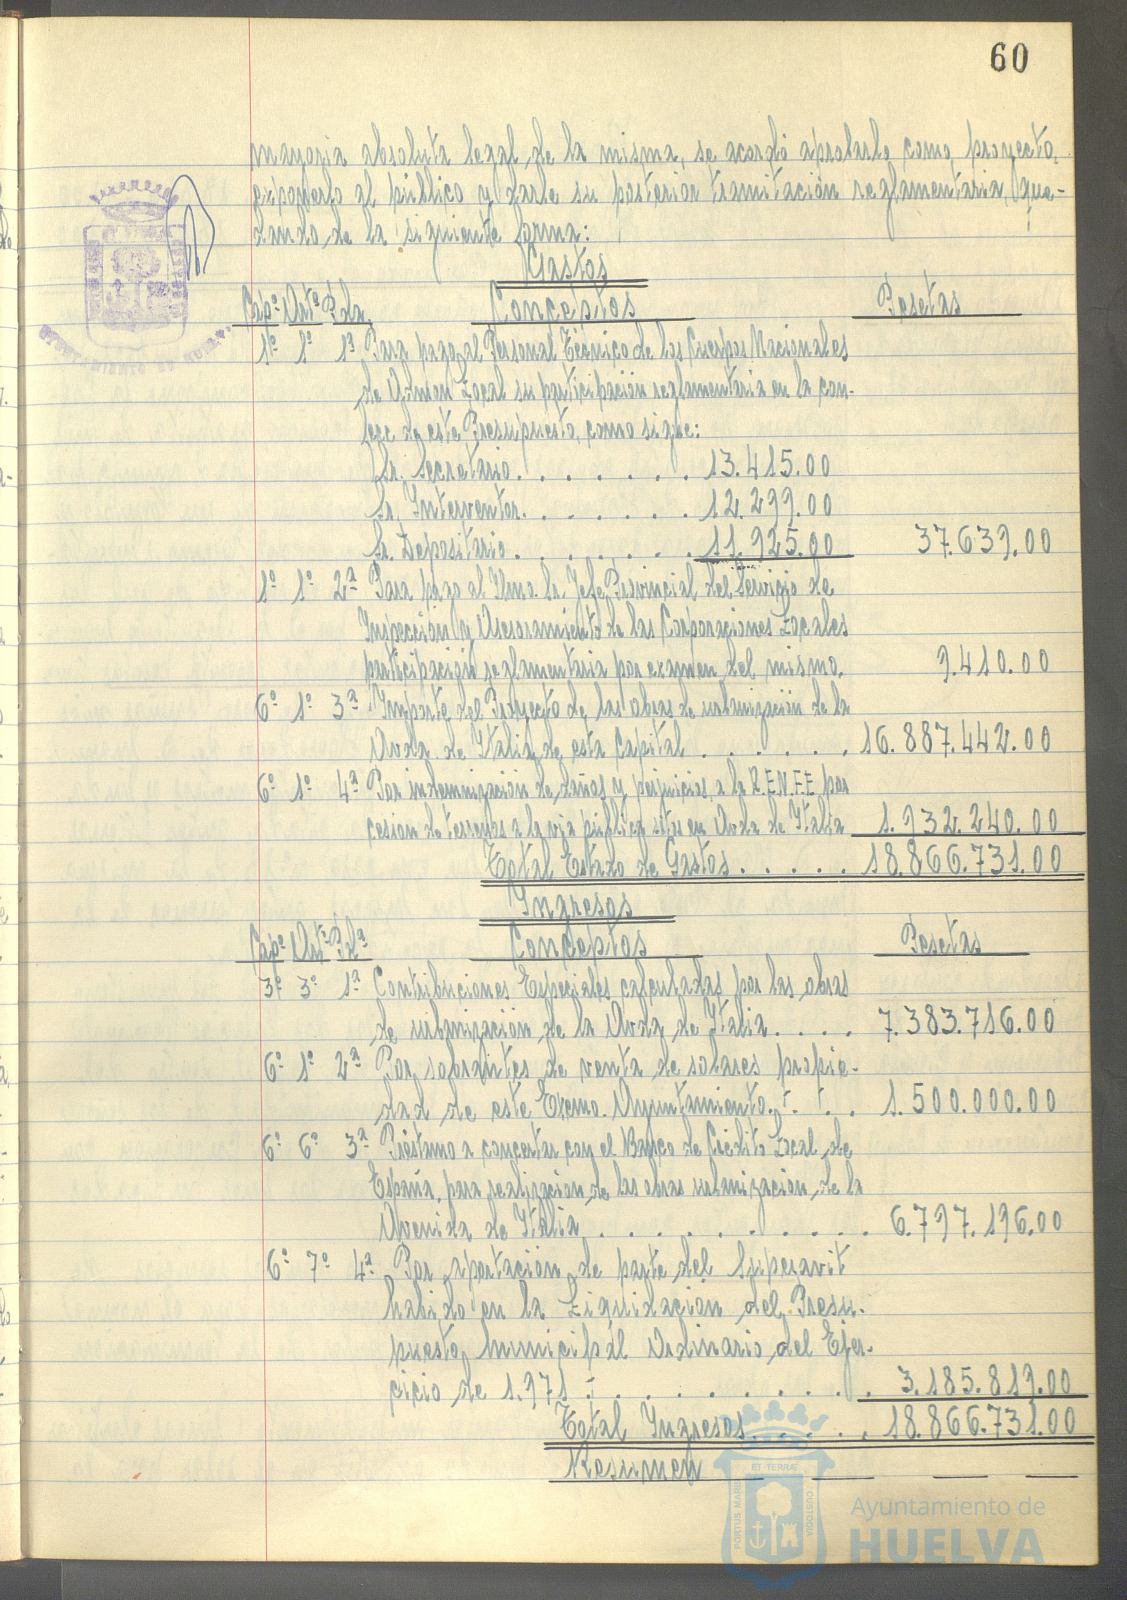 60
mayoria absoluta legal de la misma, se acordó aprobarlo como proyecto,
exponerlo al público y darle su posterior tramitación reglamentaria, que-
dando de la siguiente forma:
Gastos
Capº Artº Pda. Conceptos Pesetas
1º 1º 1ª Para pago al Personal Técnico de los Cuerpos Nacionales
de Admon Local su participación reglamentaria en la con-
fecc de este Presupuesto, como sigue:
Sr. Secretario. . . . . . . 13.415.00
Sr. Interventor. . . . . . . 12.299.00
Sr. Depositario. . . . . . . 11.925.00 37.639.00
1º 1º 2ª Para pago al Ilmo. Sr. Jefe Provincial del Servicio de
Inspección y Asesoramiento de las Corporaciones Locales
participación reglamentaria por examen del mismo. 9.410.00
6º 1º 3ª Importe del Proyecto de las obras de urbanización de la
Avda. de Italia de esta Capital . . . . . . 16.887.442.00
6º 1º 4ª Por indemnización de daños y perjuicios a la R.E.N.F.E por
cesion de terrenos a la via pública sitos en Avda de Italia 1.932.240.00
Total Estado de Gastos . . . . . 18.866.731.00
Ingresos
Capº Artº Pdª Conceptos Pesetas
3º 3º 1ª Contribuciones Especiales calculadas por las obras
de urbanización de la Avda de Italia . . . . 7.383.716.00
6º 1º 2ª Por sobrantes de venta de solares propie-
dad de este Excmo. Ayuntamiento. . . . 1.500.000.00
6º 6º 3ª Préstamo a concertar con el Banco de Crédito Local de
España, para realización de las obras urbanización de la
Avenida de Italia . . . . . . . . . . 6.797.196.00
6º 7º 4ª Por aportación de parte del Superavit
habido en la Liquidación del Presu-
puesto Municipal Ordinario del Ejer-
cicio de 1.971 - . . . . . . . . . 3.185.819.00
Total Ingresos. . . . . 18.866.731.00
Resumen
PORTUS MARIS ET TERRÆ CUSTODIA
Ayuntamiento de
HUELVA